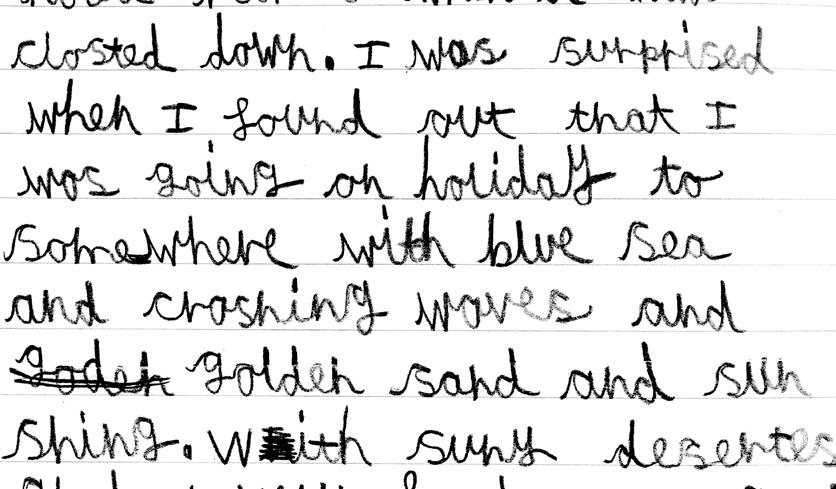 closted down. I was surprised
when I found out that I
was going on holiday to
somewhere with blue sea
and crashing waves and
goden golden sand and sun
shing. With suny desertes